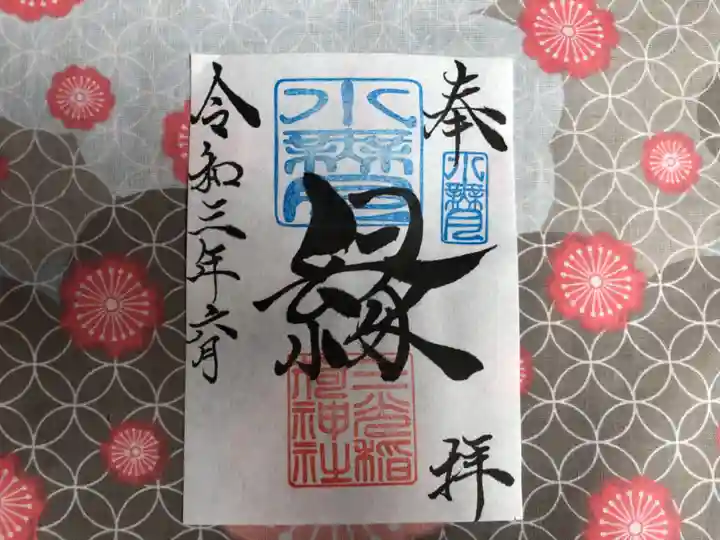 奉拝
水無月
水無月
縁
三光稲
荷神社
令和三年六月